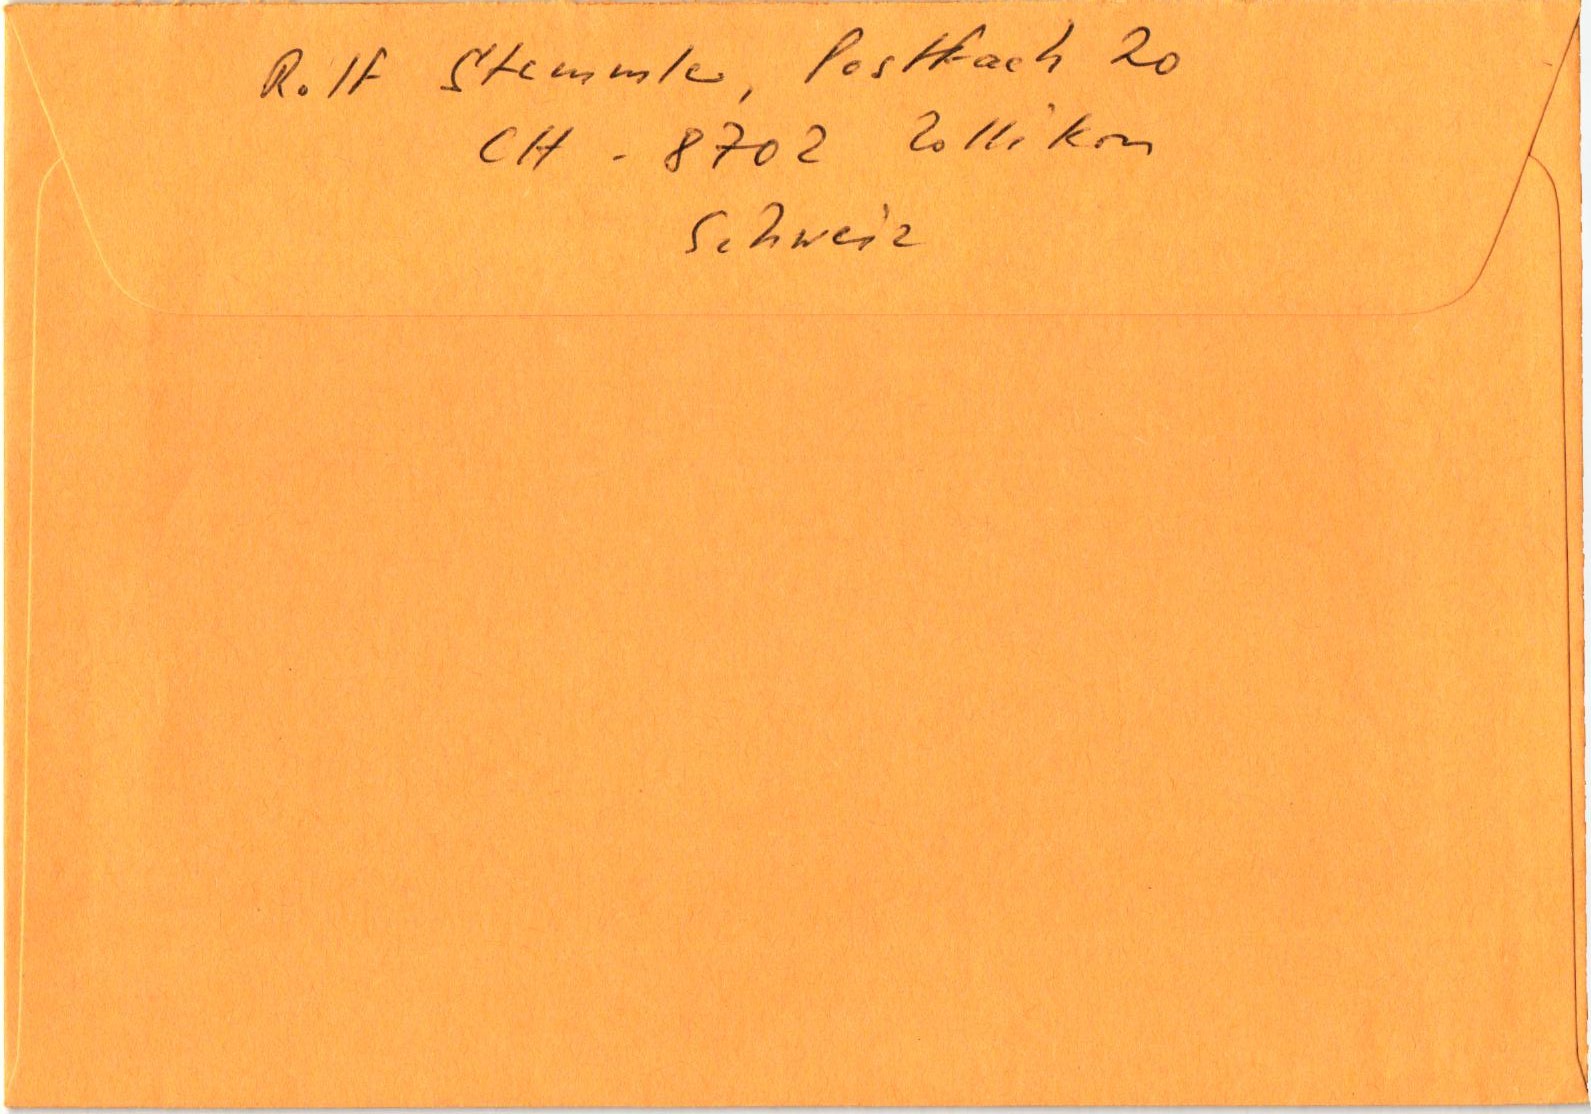 Rolf Stemmler, Postfach 20
CH - 8702 Zollikon
Schweiz